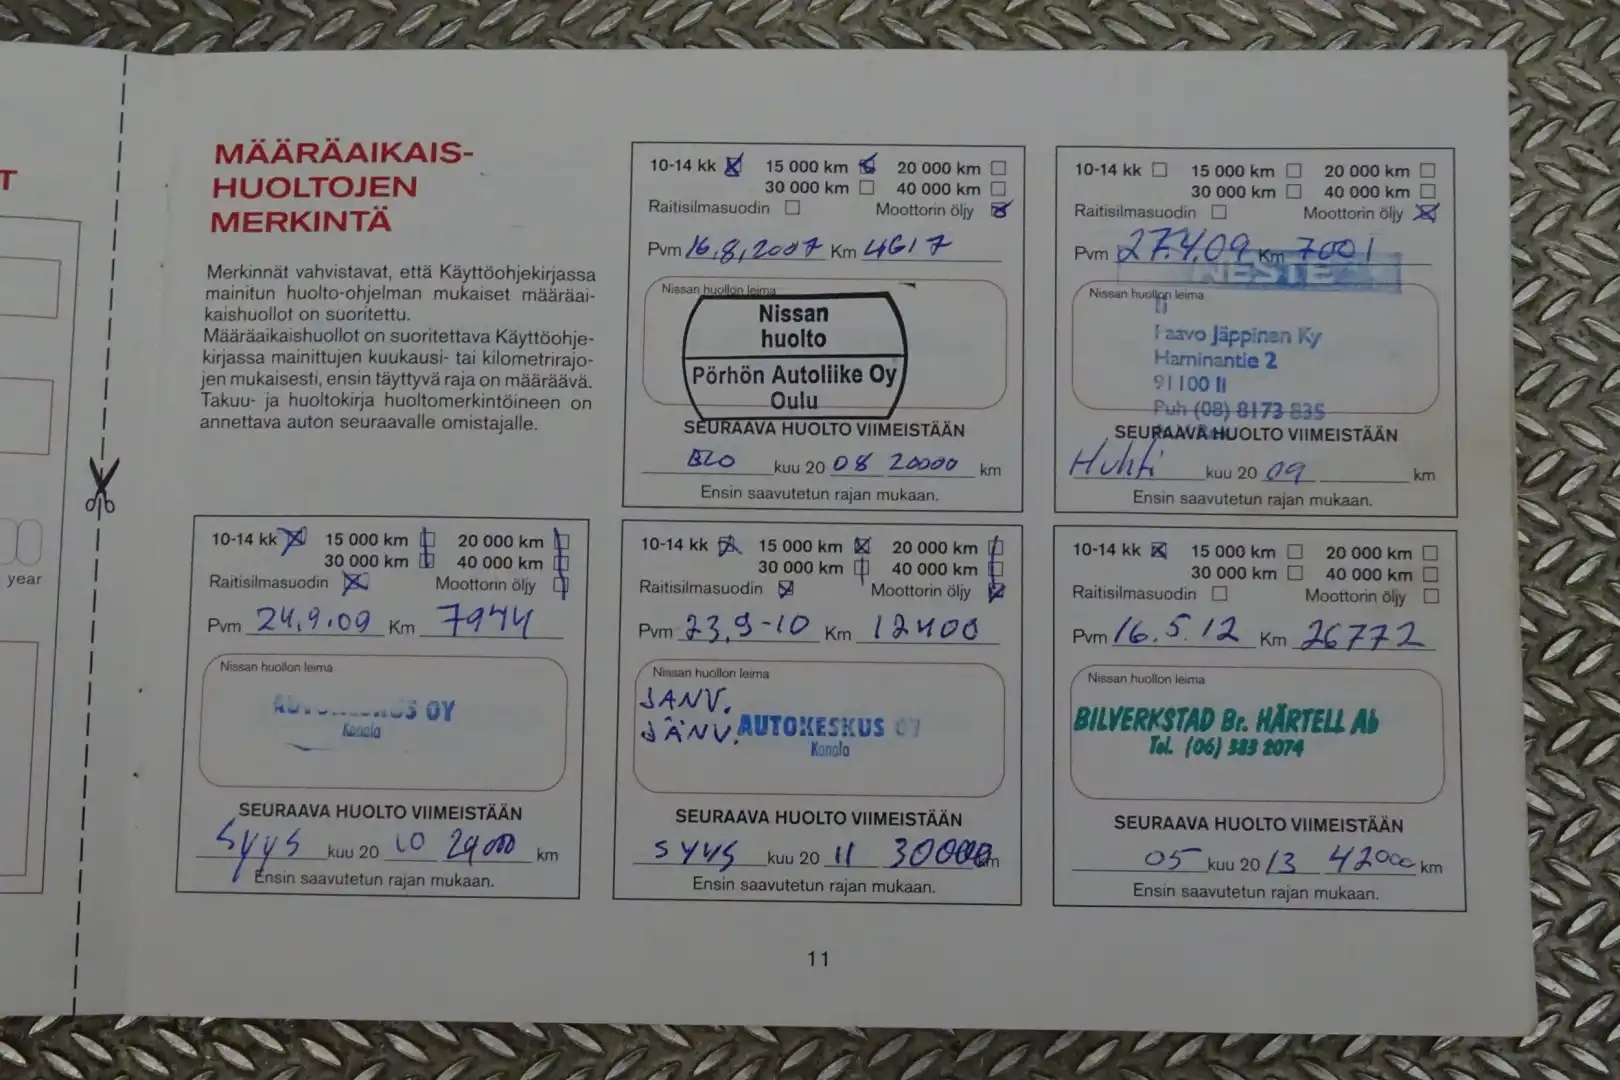 T
year
MÄÄRÄAIKAIS-
HUOLTOJEN
MERKINTÄ
Merkinnät vahvistavat, että Käyttöohjekirjassa
mainitun huolto-ohjelman mukaiset määräai-
kaishuollot on suoritettu.
Määräaikaishuollot on suoritettava Käyttöohje-
kirjassa mainittujen kuukausi- tai kilometrirajo-
jen mukaisesti, ensin täyttyvä raja on määräävä.
Takuu- ja huoltokirja huoltomerkintöineen on
annettava auton seuraavalle omistajalle.
10-14 kk 15 000 km 20 000 km
30 000 km 40 000 km
Raitisilmasuodin Moottorin öljy
Pvm 16,8,2007 Km 4617
Nissan huollon leima
Nissan
huolto
Pörhön Autoliike Oy
Oulu
SEURAAVA HUOLTO VIIMEISTÄÄN
kuu 20 08 20000 km
Ensin saavutetun rajan mukaan.
10-14 kk 15 000 km 20 000 km
30 000 km 40 000 km
Raitisilmasuodin Moottorin öljy
Pvm 27.4.09 Km 7001
NESTE
Nissan huollon leima
Ii
Paavo Jäppinen Ky
Haminantie 2
91100 Ii
Puh (08) 8173 835
SEURAAVA HUOLTO VIIMEISTÄÄN
Huhti kuu 20 09 km
Ensin saavutetun rajan mukaan.
10-14 kk 15 000 km 20 000 km
30 000 km 40 000 km
Raitisilmasuodin Moottorin öljy
Pvm 24.9.09 Km 7944
Nissan huollon leima
AUTOKESKUS OY
Konala
SEURAAVA HUOLTO VIIMEISTÄÄN
Syys kuu 20 10 km
Ensin saavutetun rajan mukaan.
10-14 kk 15 000 km 20 000 km
30 000 km 40 000 km
Raitisilmasuodin Moottorin öljy
Pvm 23.9-10 Km 12400
Nissan huollon leima
JANV.
JÄNV. AUTOKESKUS OY
Konala
SEURAAVA HUOLTO VIIMEISTÄÄN
SYYS kuu 20 11 30000 km
Ensin saavutetun rajan mukaan.
10-14 kk 15 000 km 20 000 km
30 000 km 40 000 km
Raitisilmasuodin Moottorin öljy
Pvm 16.5.12 Km 26772
Nissan huollon leima
BILVERKSTAD Br. HÄRTELL Ab
Tel. (06) 383 2074
SEURAAVA HUOLTO VIIMEISTÄÄN
05 kuu 20 13 42000 km
Ensin saavutetun rajan mukaan.
11